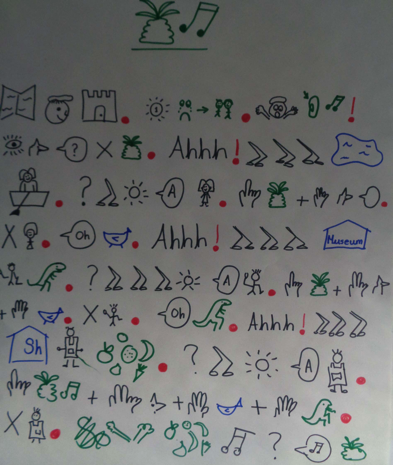 . . !
? X . Ahhh!
. ? A . + .
X . Oh . Ahhh! Museum
. ? A . +
+ . X . Oh . Ahhh!
Sh . ? A .
+ + + .
X . ?